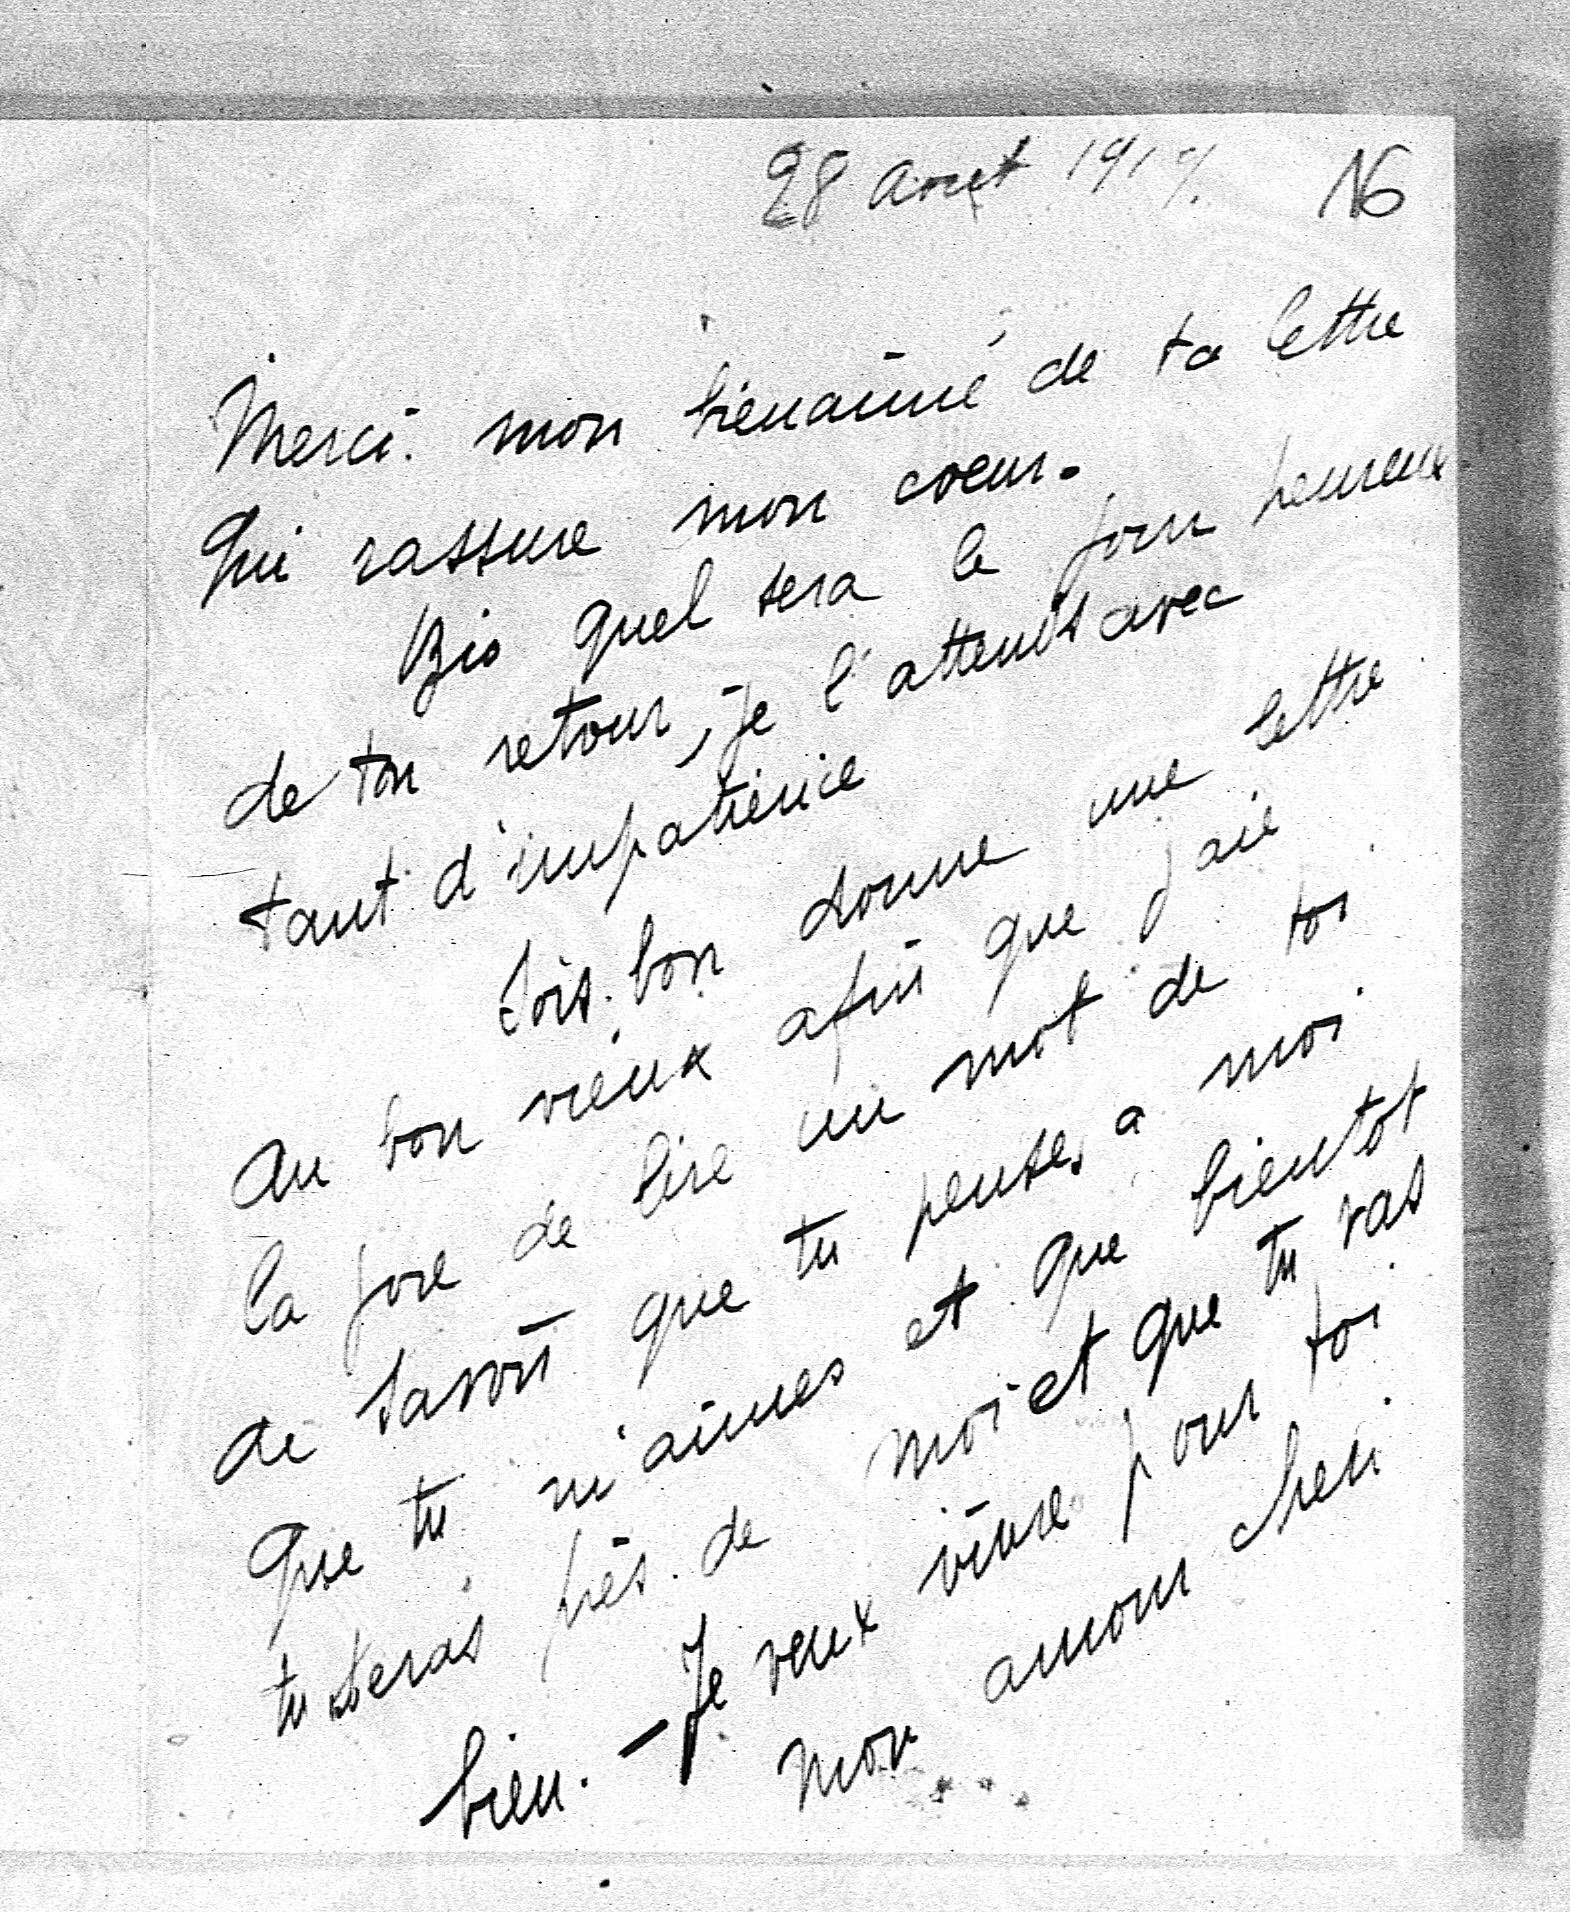 28 Aout 1917. No
Merci. mon bienaimé de ta lettre
Qui rassure mon coeur.
Bis quel sera le jour heureux
de ton retour, je l'attends avec
tant d'impatience
Sois bon donne une lettre
Au bon vieux afin que j'aie
la joie de lire un mot de toi
de savoir que tu penses a moi
Que tu m'aimes et que bientot
tu seras près de moi et que tu vas
bien. – Je veux vivre pour toi
mon amour cheri